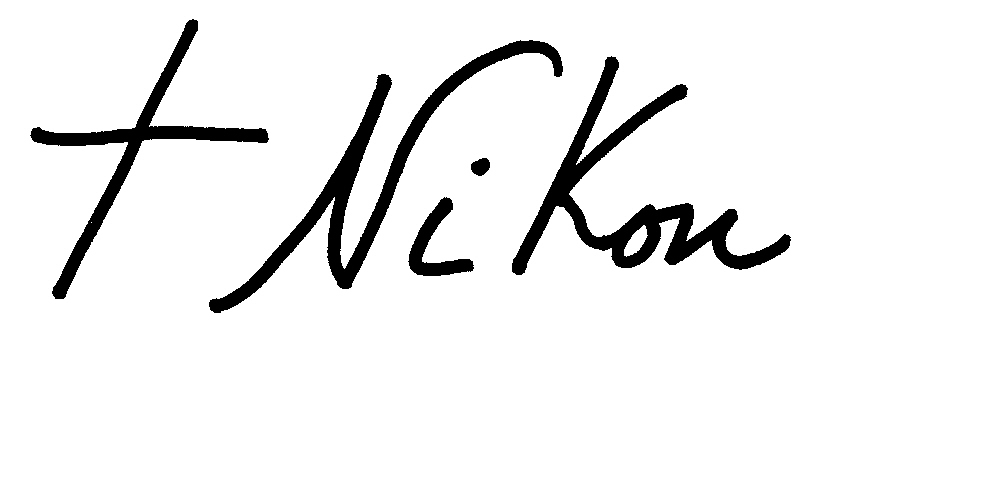 † Nikon